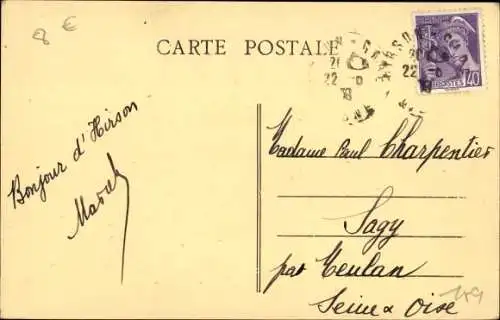 8 €
CARTE POSTALE
POSTES
40
22
Bonjour d'Hirson
Madame Paul Charpentier
Sagy
par Meulan
Seine & Oise